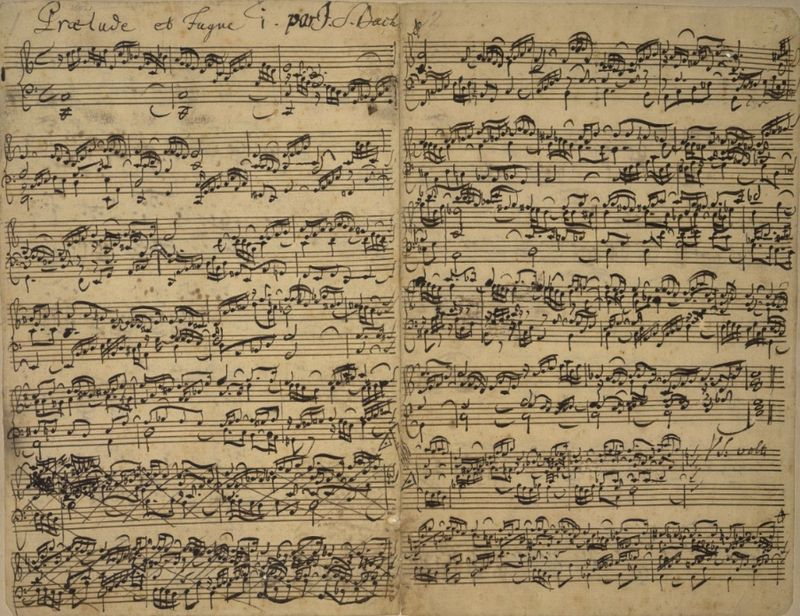 Prælude et Fugue 1. par J. S. Bach
V. S. volti